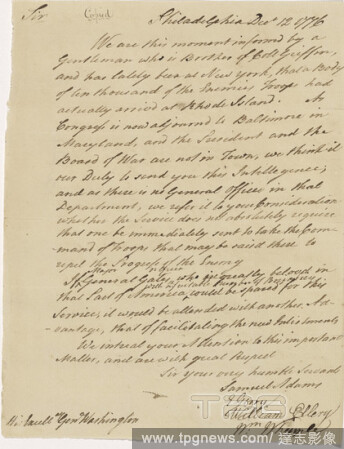 Sir
Copied
Philadelphia Decr. 12 1776
We are this moment informed by a
Gentleman who is Brother of Coll Griffin,
and has lately been at New York, that a Body
of ten thousand of the Enemies Troops had
actually arrived at Rhode Island. As
Congress is now adjourned to Baltimore in
Maryland, and the President and the
Board of War are not in Town, we think it
our Duty to send you this Intelligence;
and as there is no General officer in that
Department, we refer it to your Consideration
whether the Service does not absolutely require
that one be immediately sent to take the Com-
mand of Troops that may be raisd there to
repel the Progress of the Enemy
Major
If General Gates, who is greatly beloved in
with a suitable Number of
that Part of America could be spared for this
Service, it would be attended with another Ad-
vantage, that of facilitating the new Inlistments
We intreat your Attention to this important
Matter, and are with great Respect
Sir your very humble Servants
Samuel Adams
E Gerry
William Ellery
Wm Whipple
His Excelly Genl Washington
TPG
www.tpgnews.com 達志影像